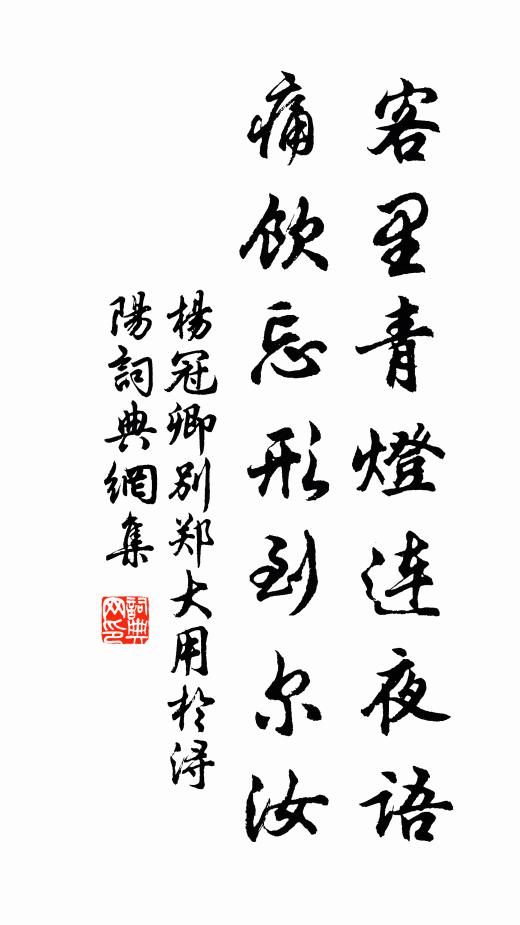 客里青燈連夜語
痛飲忘形到尔汝
楊冠卿別郑大用於浔
陽詞典網集
詞典
网印